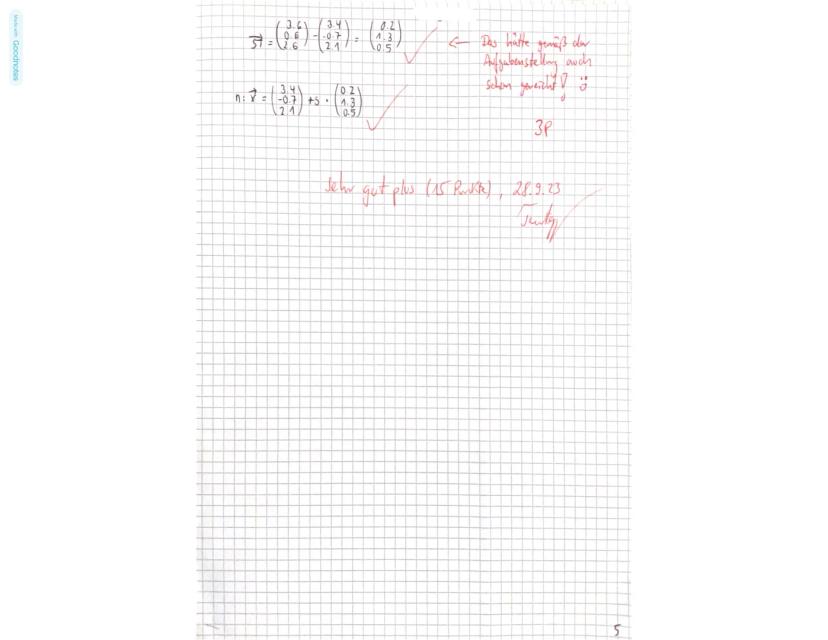 Made with Goodnotes
→ST = (3.6 0.6 2.6) - (3.4 -0.7 2.1) = (0.2 1.3 0.5) ✓
← Das hätte gemäß der
Aufgabenstellung auch
schon gereicht!
n: →r = (3.4 -0.7 2.1) + s · (0.2 1.3 0.5) ✓
3P
Sehr gut plus (15 Punkte), 28.9.23
5